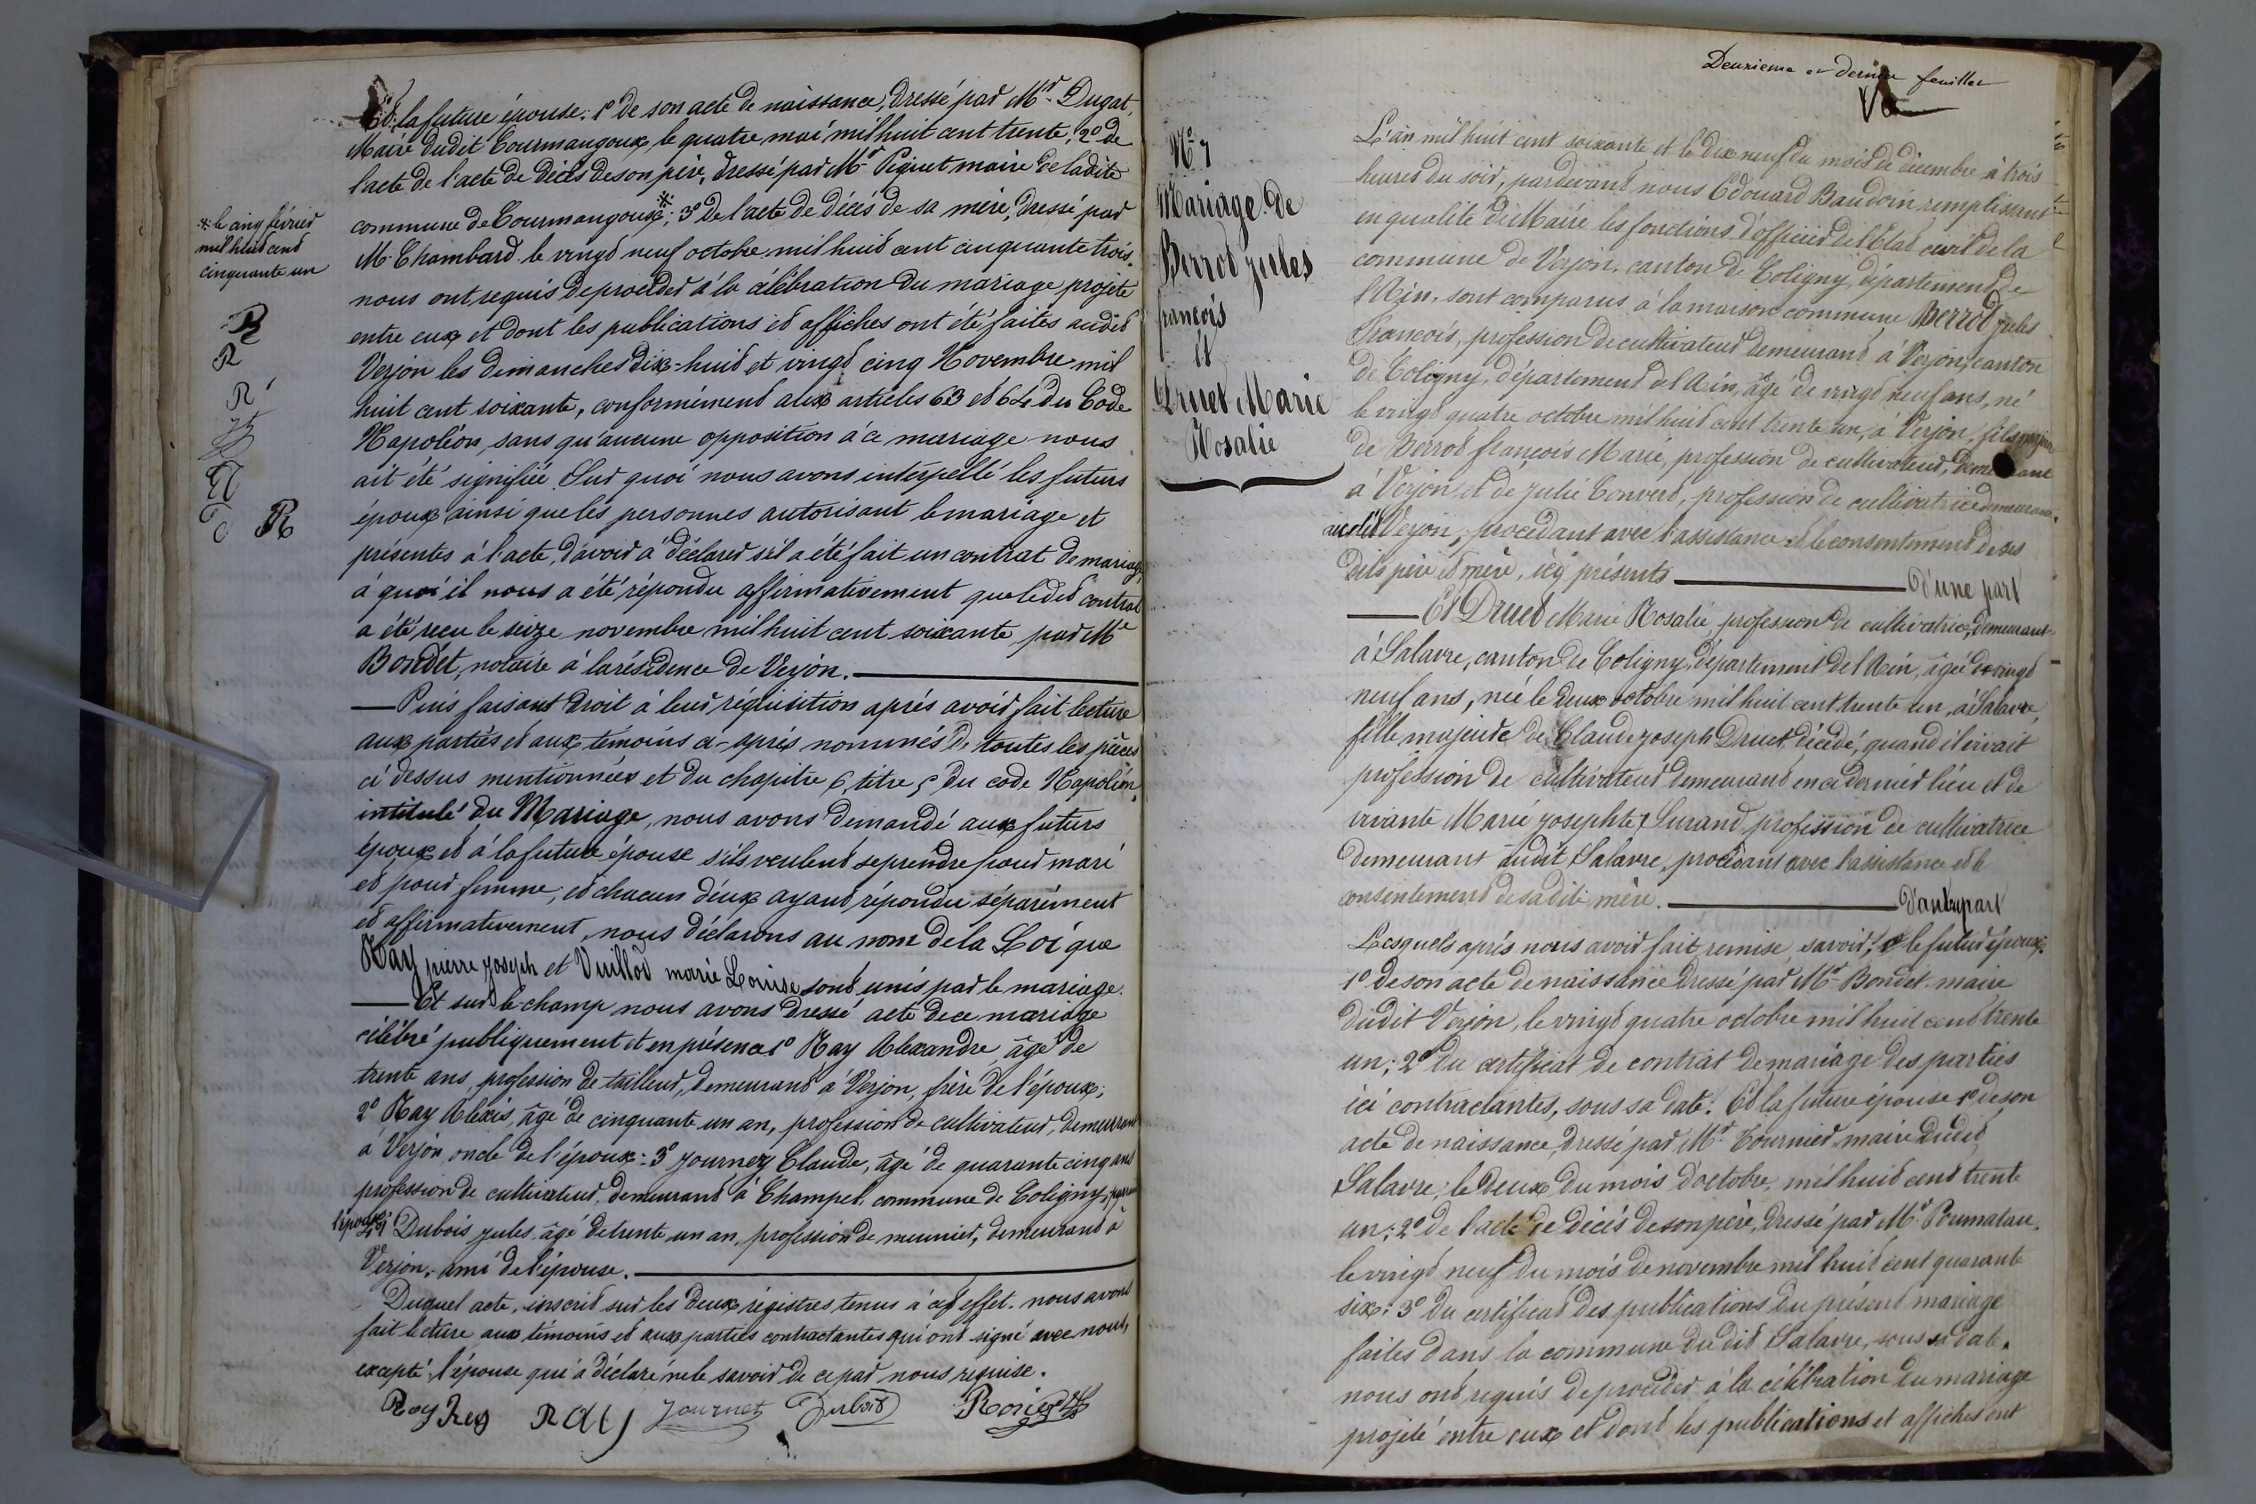 Et la future épouse: 1º de son acte de naissance, dressé par Mr. Dugat,
Maire dudit Courmangoux, le quatre mai mil huit cent trente, 2º de
l'acte de l'acte de décès de son père, dressé par Mr Piquet maire de ladite
commune de Courmangoux※; 3º de l'acte de décès de sa mère, dressé par
M. Chambard le vingt neuf octobre mil huit cent cinquante trois.
nous ont requis de procéder à la célébration du mariage projeté
entre eux et dont les publications et affiches ont été faites audit
Verjon les dimanches dix-huit et vingt cinq Novembre mil
huit cent soixante, conformément aux articles 63 et 64 du Code
Napoléon, sans qu'aucune opposition à ce mariage nous
ait été signifiée. Sur quoi nous avons interpellé les futurs
époux ainsi que les personnes autorisant le mariage et
présentes à l'acte, d'avoir à déclarer s'il a été fait un contrat de mariage,
à quoi il nous a été répondu affirmativement que ledit contrat
a été reçu le seize novembre mil huit cent soixante par Me
Bondet, notaire à la résidence de Verjon.
Puis faisant droit à leur réquisition après avoir fait lecture
aux parties et aux témoins ci-après nommés de toutes les pièces
ci dessus mentionnées et du chapitre 6, titre 5 du code Napoléon,
intitulé du Mariage, nous avons demandé aux futurs
époux et à la future épouse s'ils veulent se prendre pour mari
et pour femme; et chacun d'eux ayant répondu séparément
et affirmativement, nous déclarons au nom de la Loi que
Ray pierre joseph et Vuillod marie Louise sont unis par le mariage.
Et sur le-champ nous avons dressé acte de ce mariage
célébré publiquement et en présence 1º Ray Alexandre âgé de
trente ans, profession de tailleur, demeurant à Verjon, frère de l'époux;
2º Ray Alexis, âgé de cinquante un an, profession de cultivateur, demeurant
à Verjon oncle de l'époux: 3º Journez Claude, âgé de quarante cinq ans
profession de cultivateur, demeurant à Champel, commune de Coligny,
l'époux 4º Dubois jules âgé de trente un an, profession de meunier, demeurant à
Verjon, ami de l'épouse.
Duquel acte, inscrit sur les deux régistres tenus à cet effet. nous avons
fait lecture aux témoins et aux parties contractantes qui ont signé avec nous,
excepté l'épouse qui a déclaré ne le savoir de ce par nous requise.
Ray Rey RAY Journet Dubois
※ le cinq février
mil huit cent
cinquante un
R
R
R
R
Deuxieme et dernier feuillet
Nº 7
Mariage de
Berrod jules
françois
et
Druet Marie
Rosalie
L'an mil huit cent soixante et le dix neuf du mois de décembre à trois
heures du soir, pardevant nous Edouard Baudoin remplissant
en qualité de Maire les fonctions d'officier de l'Etat civil de la
commune de Verjon, canton de Coligny, département de
l'Ain, sont comparus à la maison commune Berrod jules
francois, profession de cultivateur demeurant à Verjon, canton
de Coligny, département de l'Ain, âgé de vingt neuf ans, né
le vingt quatre octobre mil huit cent trente un, à Verjon, fils majeur
de Berrod françois Marie, profession de cultivateur, demeurant
à Verjon et de julie Convert, profession de cultivatrice demeurant
audit Verjon, procédant avec l'assistance et le consentement de ses
dits père et mère, icy présents d'une part
Et Druet Marie Rosalie, profession de cultivatrice, demeurant
à Salavre, canton de Coligny, département de l'Ain, âgée de vingt
neuf ans, née le deux octobre mil huit cent trente un, à Salavre,
fille majeure de Claude joseph Druet, décédé, quand il vivait
profession de cultivateur demeurant en ce dernier lieu et de
vivante Marie josephte Surand, profession de cultivatrice
demeurant audit Salavre, procédant avec l'assistance et le
consentement de sadite mère. d'autre part
Lesquels après nous avoir fait remise, savoir, le futur époux.
1º de son acte de naissance dressé par Mr Bondet maire
dudit Verjon, le vingt quatre octobre mil huit cent trente
un; 2º du certificat de contrat de mariage des parties
ici contractantes, sous sa date. Et la future épouse 1º de son
acte de naissance, dressé par Mr Tournier maire dudit
Salavre, le deux du mois d'octobre, mil huit cent trente
un; 2º de l'acte de décès de son père, dressé par Mr Poumatau.
le vingt neuf du mois de novembre mil huit cent quarante
six; 3º du certificat des publications du présent mariage
faites dans la commune du dit Salavre, sous sa date.
nous ont requis de procéder à la célébration du mariage
projeté entre eux et dont les publications et affiches ont